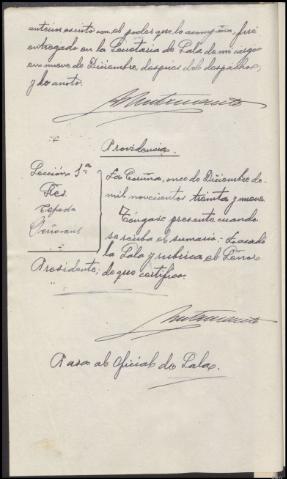 anterior escrito con el poder que lo acompaña, fué
entregado en la Secretaria de Sala de mi cargo
en nueve de Diciembre, despues del despacho,
y lo anoto.
Providencia
Sección 1ª
La Coruña, once de Diciembre de
mil novecientos treinta y nueve
Tejada
Téngase presente cuando
se reciba el sumario. Lo acordó
la Sala y rubrica el Señor
Presidente, de que certifico.
Pasa al Oficial de Sala.